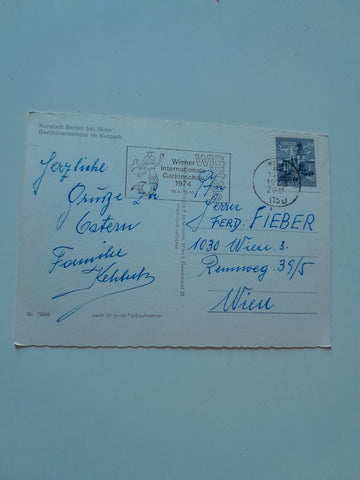 Kurstadt Baden bei Wien
Beethoventempel im Kurpark
Herzliche
Grüße zu
Ostern
Familie
Wiener
Internationale
Gartenschau
1974
WIG
74
1150
An
Herrn
FERD. FIEBER
1030 Wien 3.
Rennweg 39/5
Wien
Nr. 75648
nach Original-Farbaufnahme